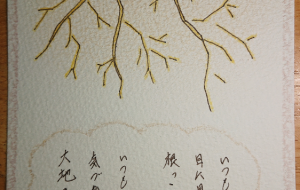 いつも
目に見
根っこ
いつも
気づ
大地